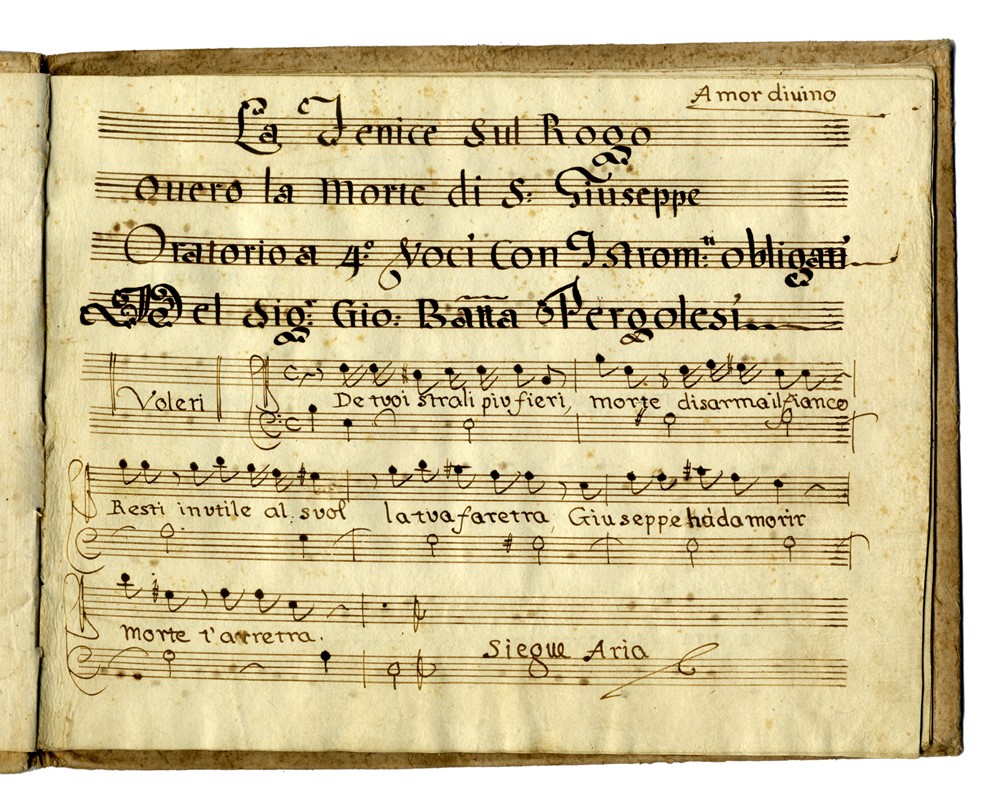 Amor divino
La Fenice sul Rogo
overo la Morte di S: Giuseppe
Oratorio a 4.º Voci Con Istrom:ti obligati
Del Sig:r Gio: Batta Pergolesi
Voleri
De tvoi strali piv fieri, morte disarma il fianco
Resti invtile al svol la tva faretra, Giuseppe hà da morir
morte t'arretra.
Siegue Aria